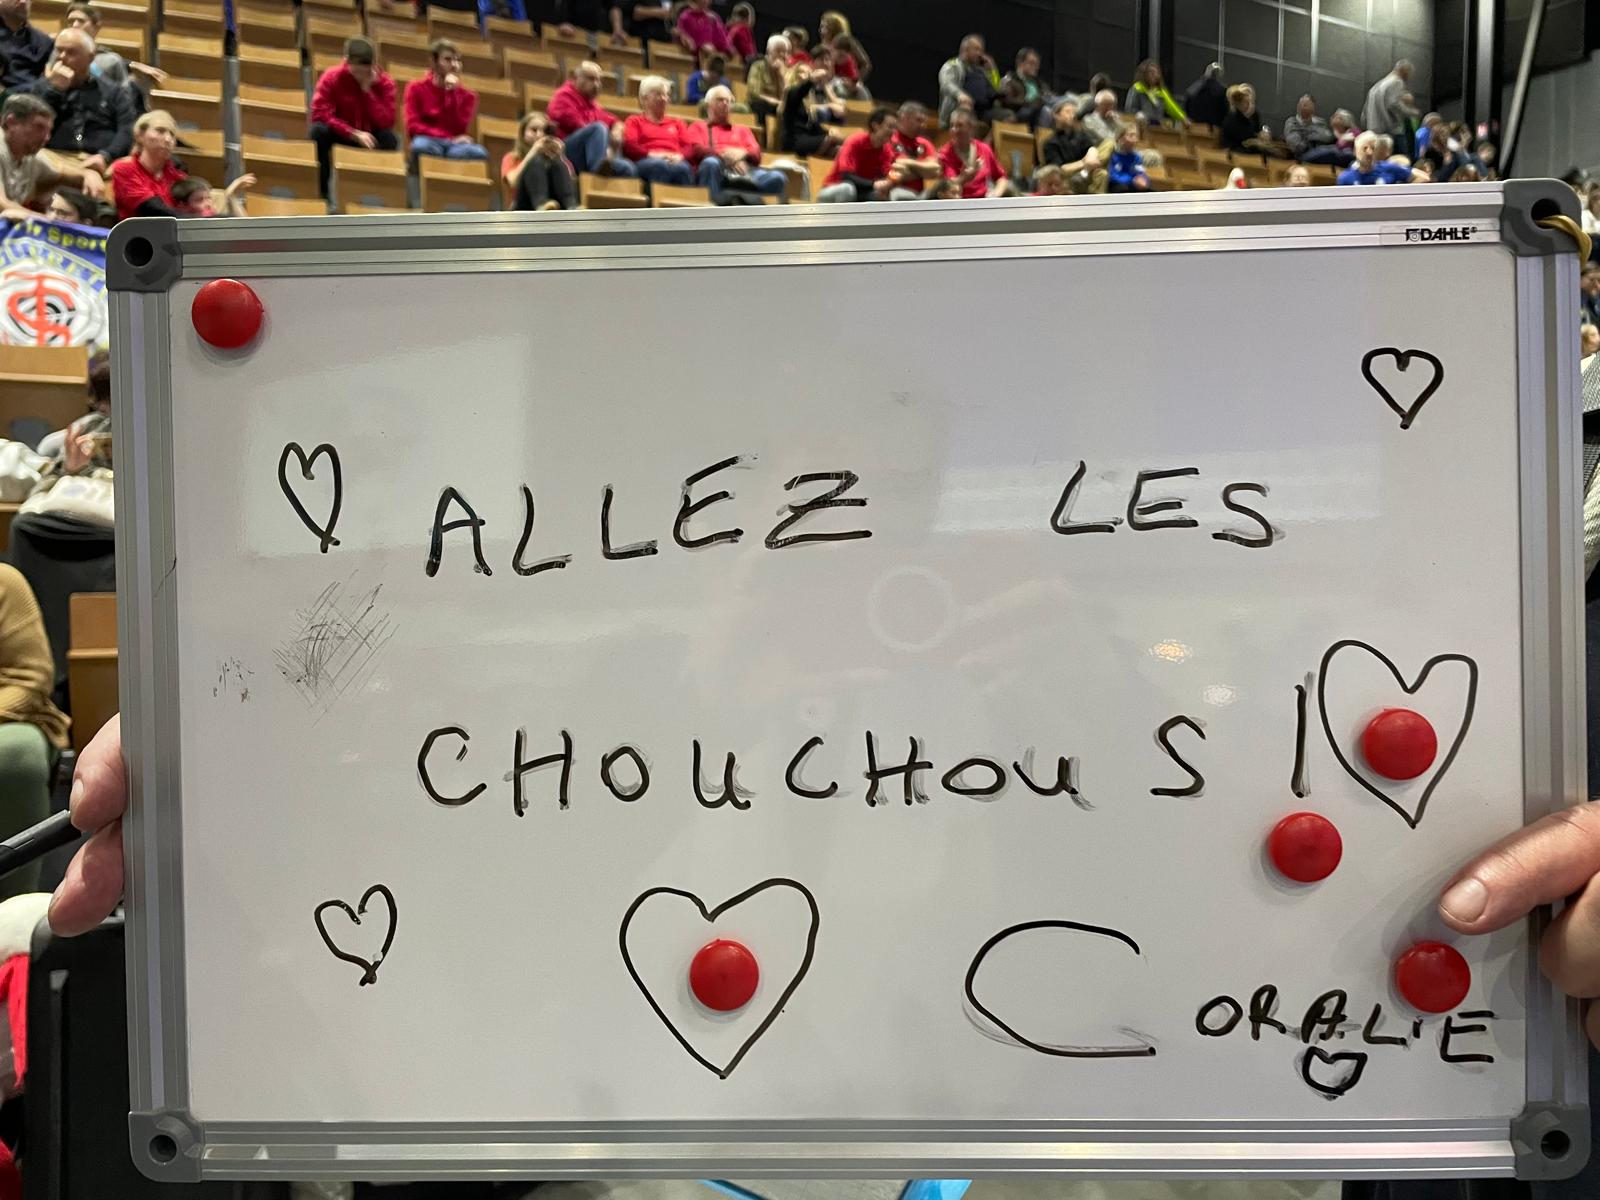 DAHLE
ALLEZ LES
CHOUCHOUS !
CORALIE